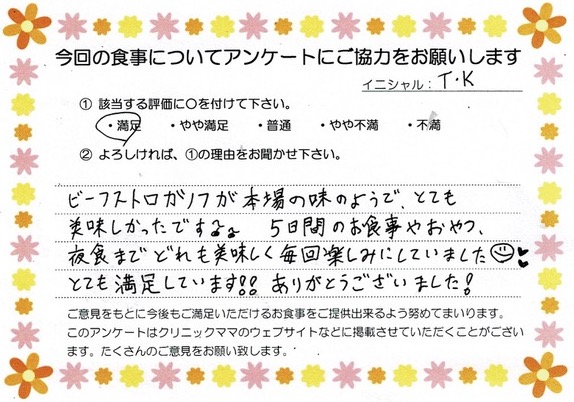 今回の食事についてアンケートにご協力をお願いします
イニシャル：T・K
① 該当する評価に○を付けて下さい。
・満足 ・やや満足 ・普通 ・やや不満 ・不満
② よろしければ、①の理由をお聞かせ下さい。
ビーフストロガノフが本場の味のようで、とても
美味しかったです 5日間のお食事やおやつ、
夜食までどれも美味しく毎回楽しみにしていました
とても満足しています!! ありがとうございました!
ご意見をもとに今後もご満足いただけるお食事をご提供出来るよう努めてまいります。
このアンケートはクリニックママのウェブサイトなどに掲載させていただくことがござい
ます。たくさんのご意見をお願い致します。